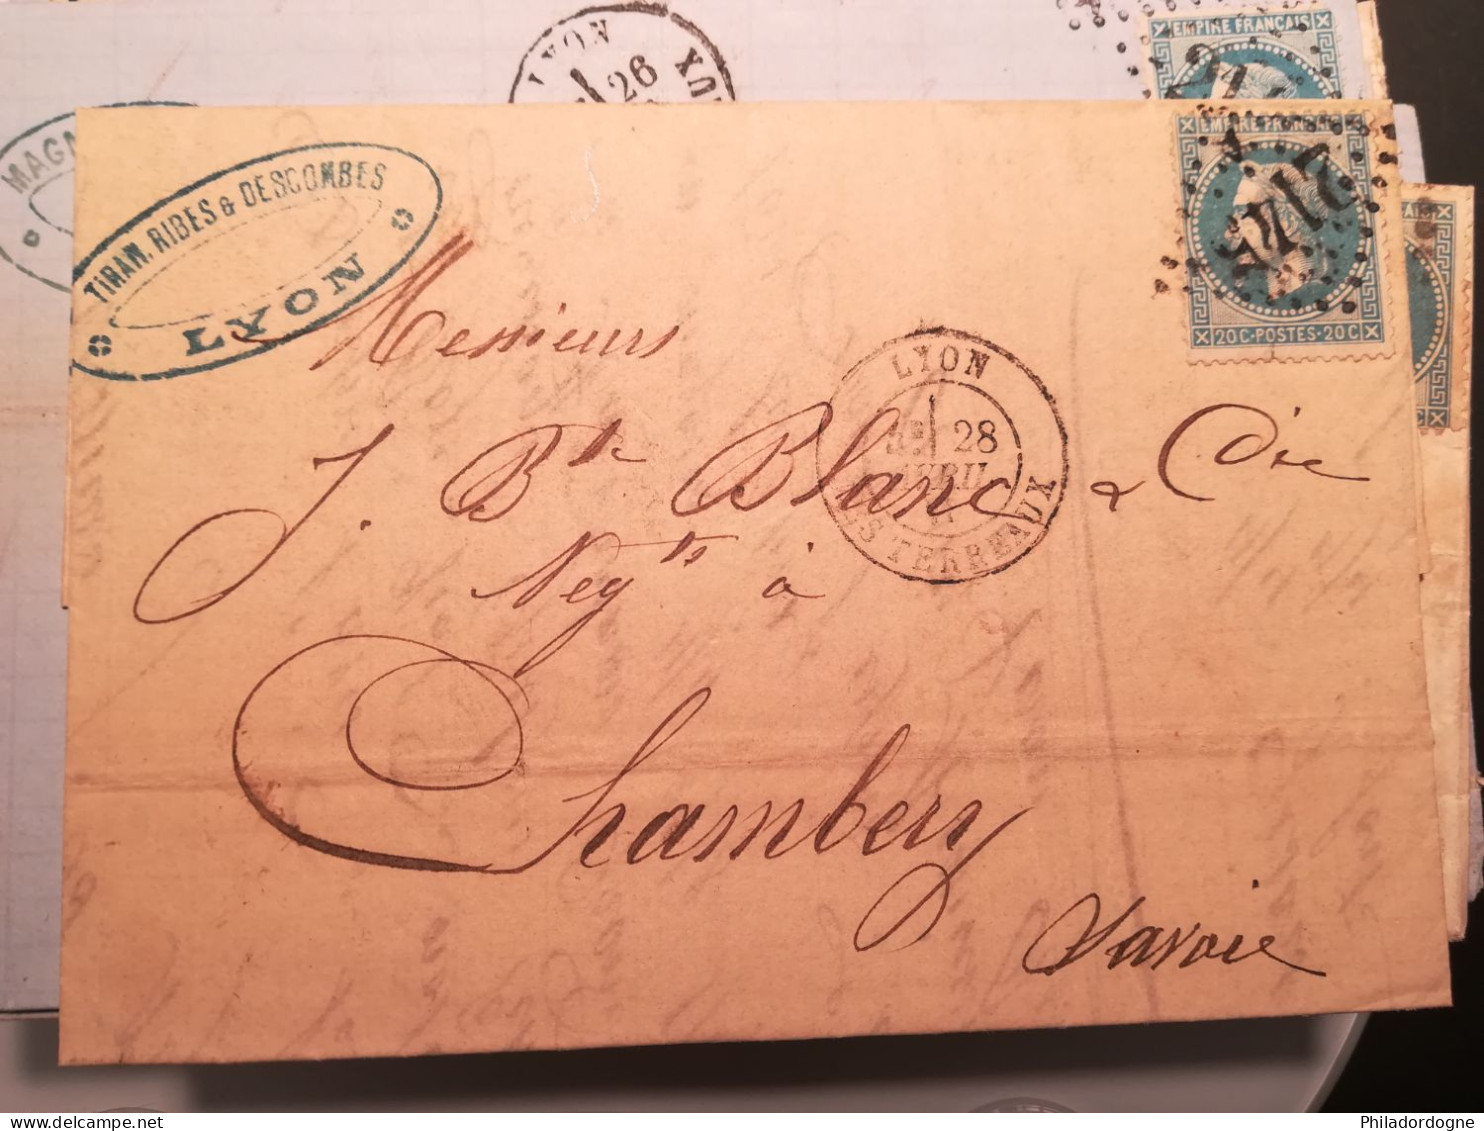 LYON
26
EMPIRE FRANÇAIS
MAGN
TIRAN, RIBES & DESCOMBES
LYON
EMPIRE FRANÇAIS
20C·POSTES·20C
Messieurs
LYON
28
AVRIL
LES TERREAUX
J. Bte Blanc & Cie
Negts à
Chambery
Savoie
Philadordogne